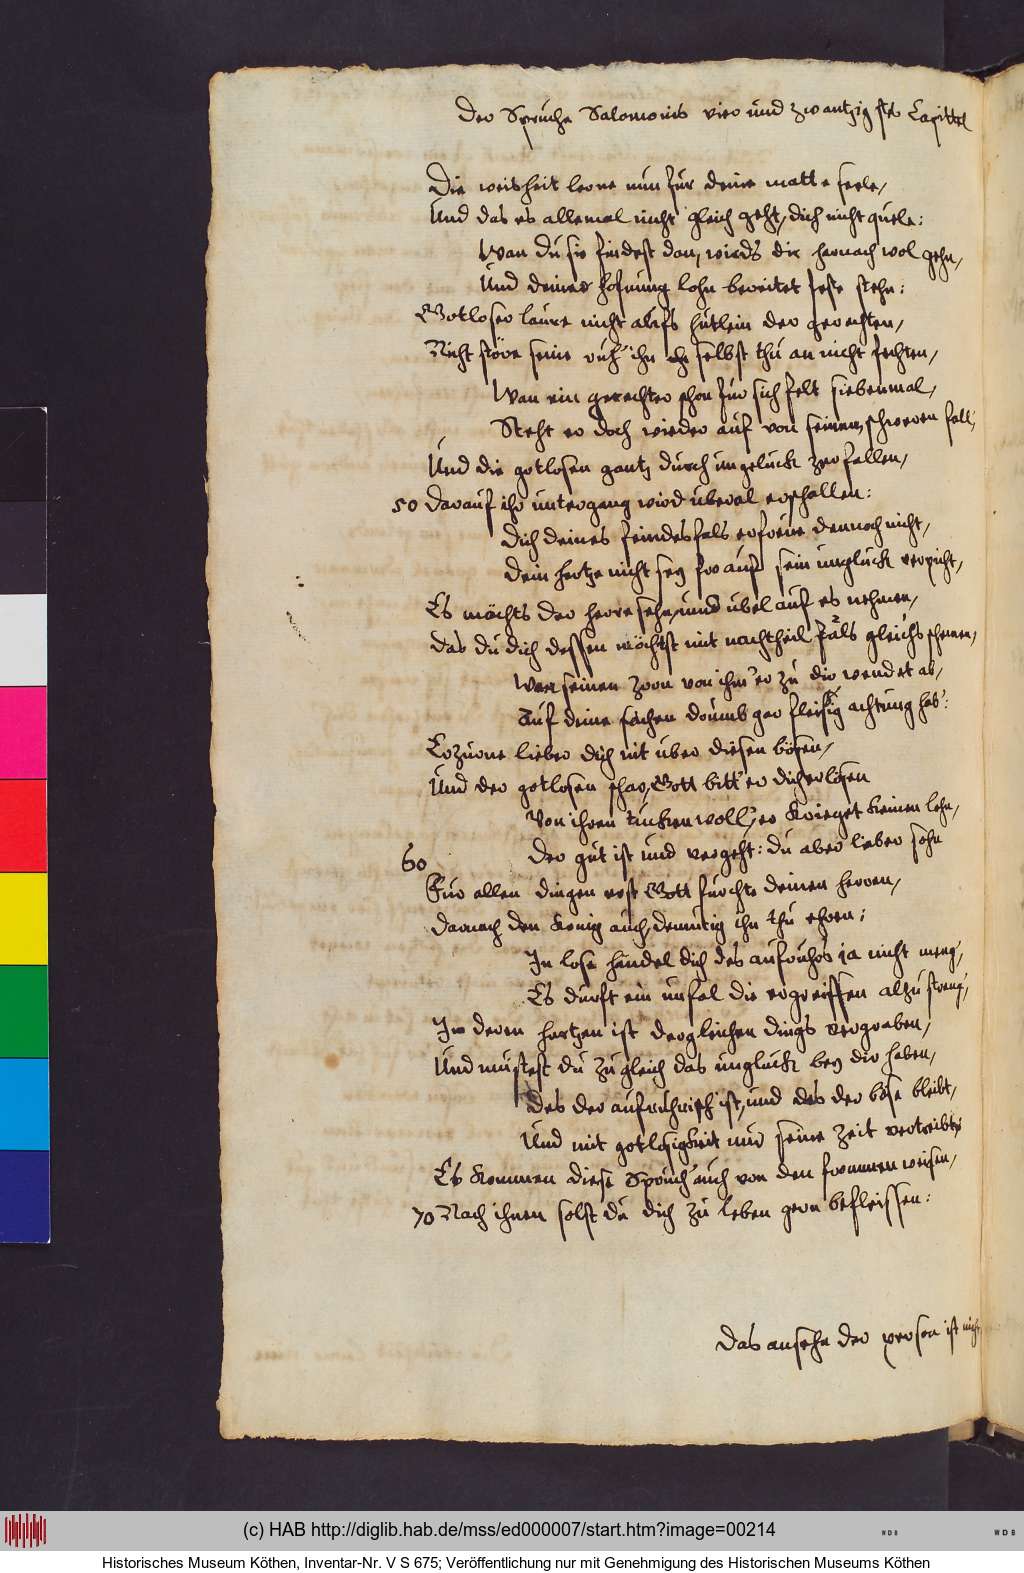 Der Spruche Salomonis vier und zwantzigstes Capittel
Die weisheit lerne nun fur deine matte seele,
Und das es allemal nicht gleich geht, dich nicht quele:
Wan du sie findest dan, wirds dir hernach wol gehn,
Und deiner hofnung lohn bereitet feste stehn:
Gotloser laure nicht aufs hutlein der gerechten,
Nicht störe seine ruh' ihn selbst thu an nicht fechten,
Wan ein gerechter schon fur sich felt siebenmal,
Steht er doch wieder auf von seinem schweren fall,
Und die gotlosen gantz durch ungeluck zerfallen,
50 darauf ihr untergang wird uberal erschallen:
dich deines feindes fals erfreue dennoch nicht,
dein hertze nicht sey fro auf sein ungluck erpicht,
Es möchts der herre sehn, und ubel auf es nehmen,
das du dich dessen möchtst mit nachtheil fals gleichs schemen,
Wer seinen zorn von ihm er zu dir wendet ab,
Auf deine sachen drumb gar fleisig achtung hab':
Erzurne lieber dich nit uber diesen bösen,
Und der gotlosen schar, Gott bitt' er dich erlösen
Von ihren tucken woll', er krieget keinen lohn,
60 Der gut ist und vergeht: du aber lieber sohn
Fur allen dingen erst Gott furchte deinen herren,
darnach den König auch, demutig ihn thu ehren:
In lose händel dich des aufruhrs ja nicht meng',
Es durft ein unfal die ergreiffen alzu streng',
In deren hertzen ist dergleichen dings vergraben,
Und mustest du zugleich das ungluck bey dir haben,
des der aufruhrisch ist, und des der böse bleibt,
Und mit gotlosigkeit nur seine zeit vertreibt,
Es kommen diese Spruch' auch von den frommen weisen,
70 Nach ihnen solst du dich zu leben gern befleissen:
Das ansehn der person ist nicht
(c) HAB http://diglib.hab.de/mss/ed000007/start.htm?image=00214
WDB
WDB
Historisches Museum Köthen, Inventar-Nr. V S 675; Veröffentlichung nur mit Genehmigung des Historischen Museums Köthen